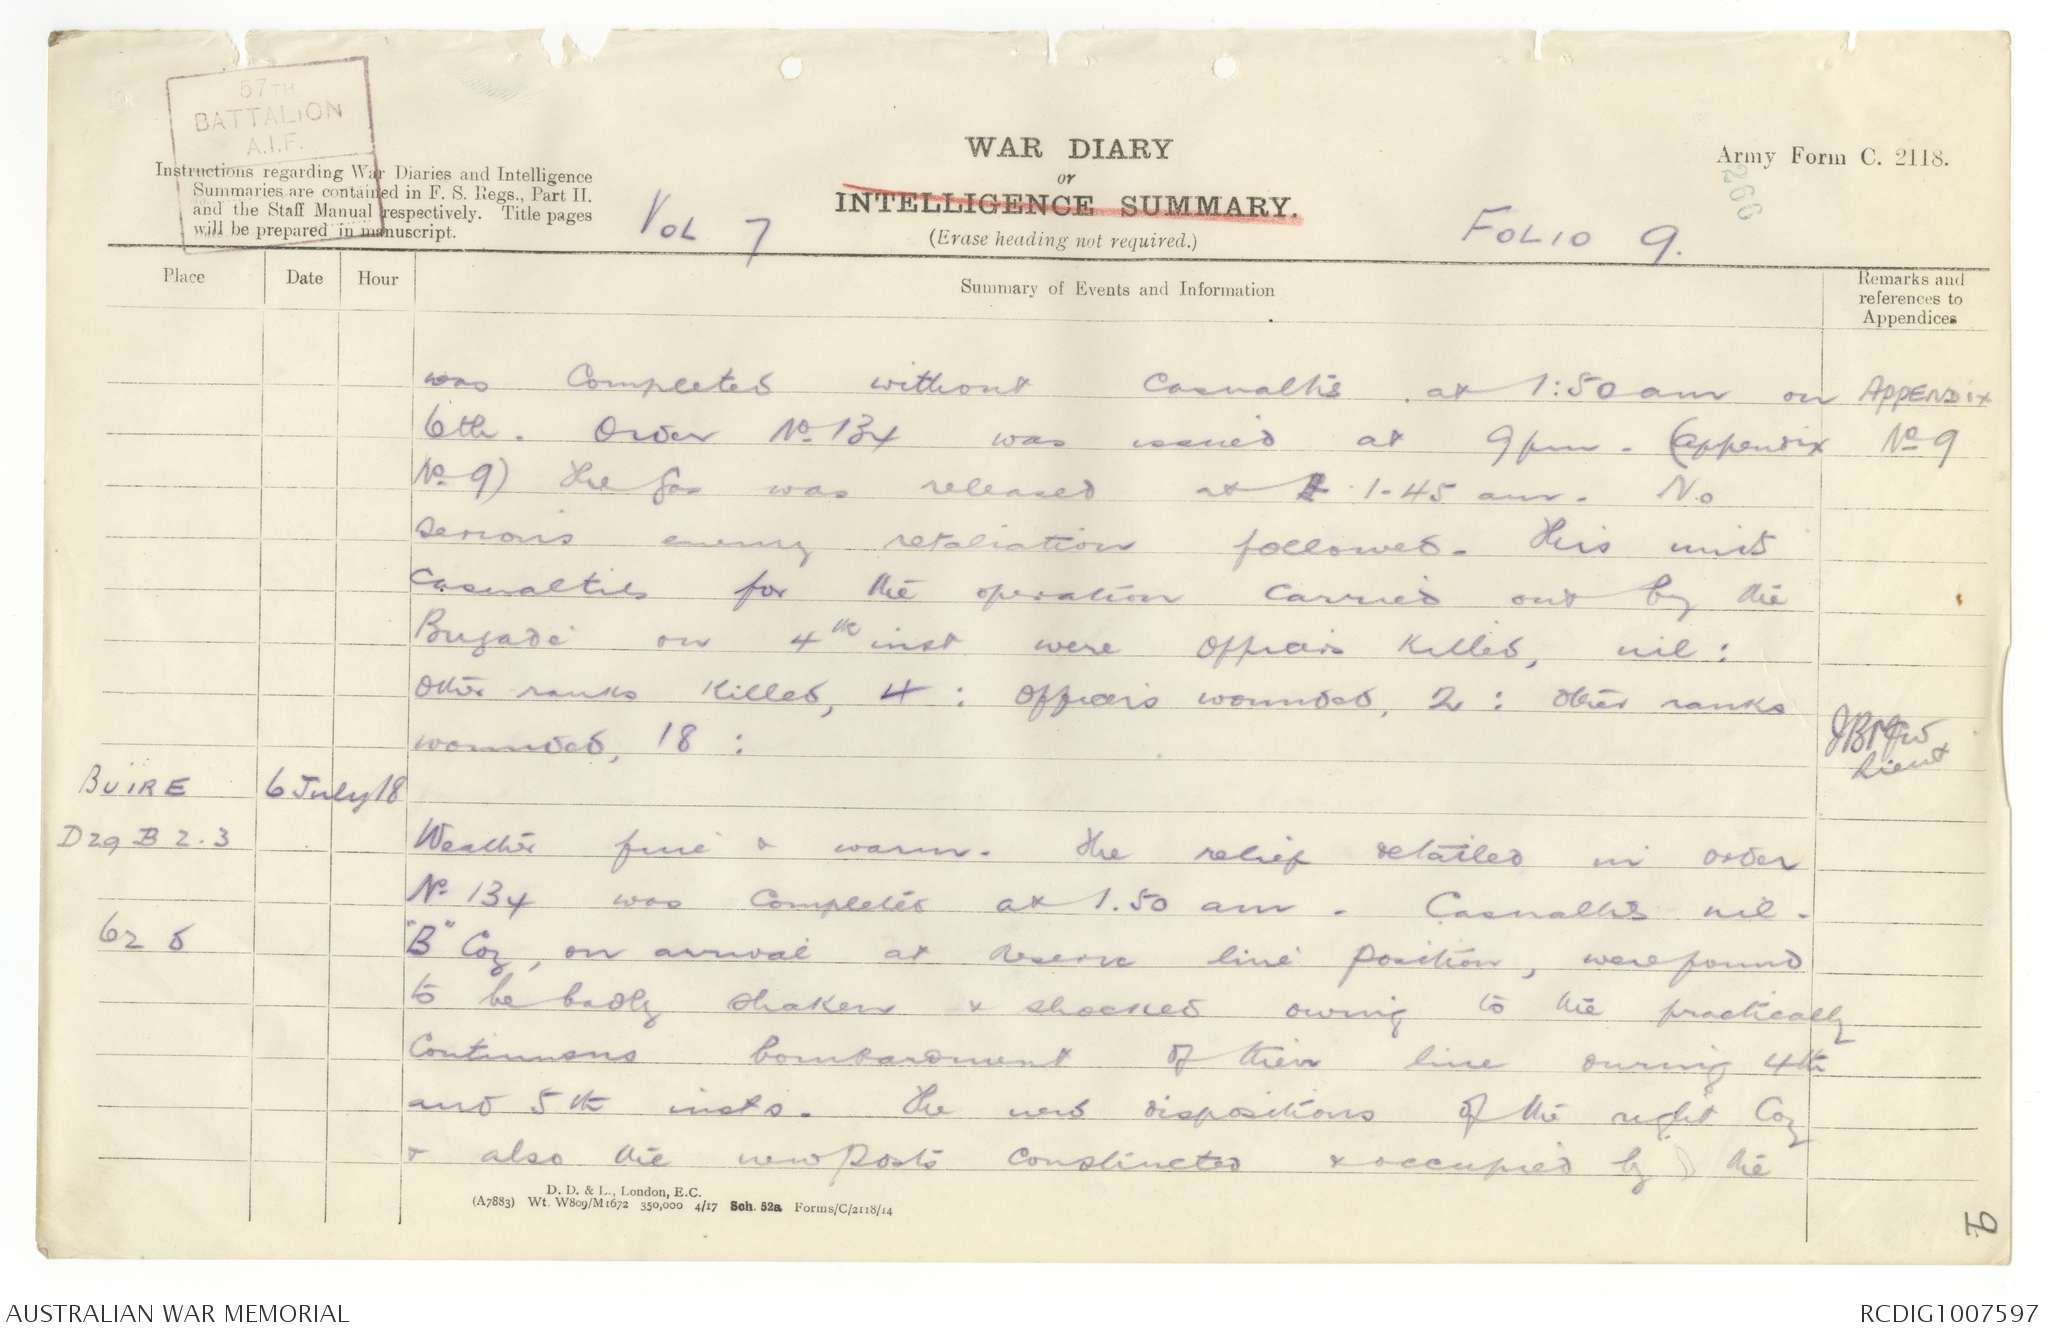 57TH
BATTALION
A.I.F.
WAR DIARY
or
INTELLIGENCE SUMMARY.
(Erase heading not required.)
Army Form C. 2118.
266
Instructions regarding War Diaries and Intelligence
Summaries are contained in F. S. Regs., Part II.
and the Staff Manual respectively. Title pages
will be prepared in manuscript.
VOL 7
FOLIO 9.
Place Date Hour Summary of Events and Information Remarks and references to Appendices
was completed without casualties at 1:50 am on APPENDIX
6th. Order No 134 was issued at 9 pm. (appendix No 9
No 9) The gas was released at 1-45 am. No
serious enemy retaliation followed. This units
casualties for the operation carried out by the
Brigade on 4th inst were Officers killed, nil:
Other ranks killed, 4: Officers wounded, 2: Other ranks
wounded, 18: Lieut
BUIRE 6 July 18
D29 B 2.3 Weather fine & warm. The relief detailed in order
No 134 was completed at 1.50 am. Casualties nil.
62 D "B" Coy, on arrival at Reserve line position, were found
to be badly shaken & shocked owing to the practically
continuous bombardment of their line during 4th
and 5th insts. The new dispositions of the right Coy
& also the new posts constructed & occupied by the
D. D. & L., London, E.C.
(A7883) Wt. W809/M1672 350,000 4/17 Sch. 52a Forms/C/2118/14
9
AUSTRALIAN WAR MEMORIAL
RCDIG1007597